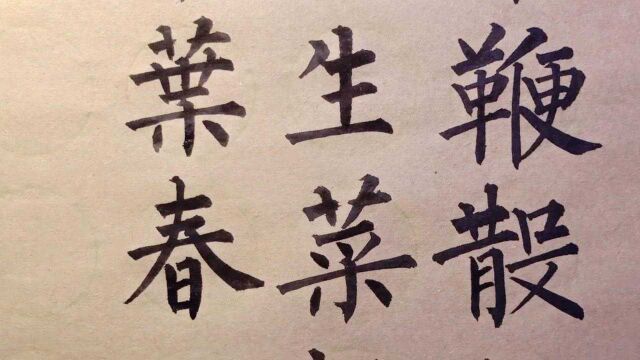 鞭散
生菜
葉春